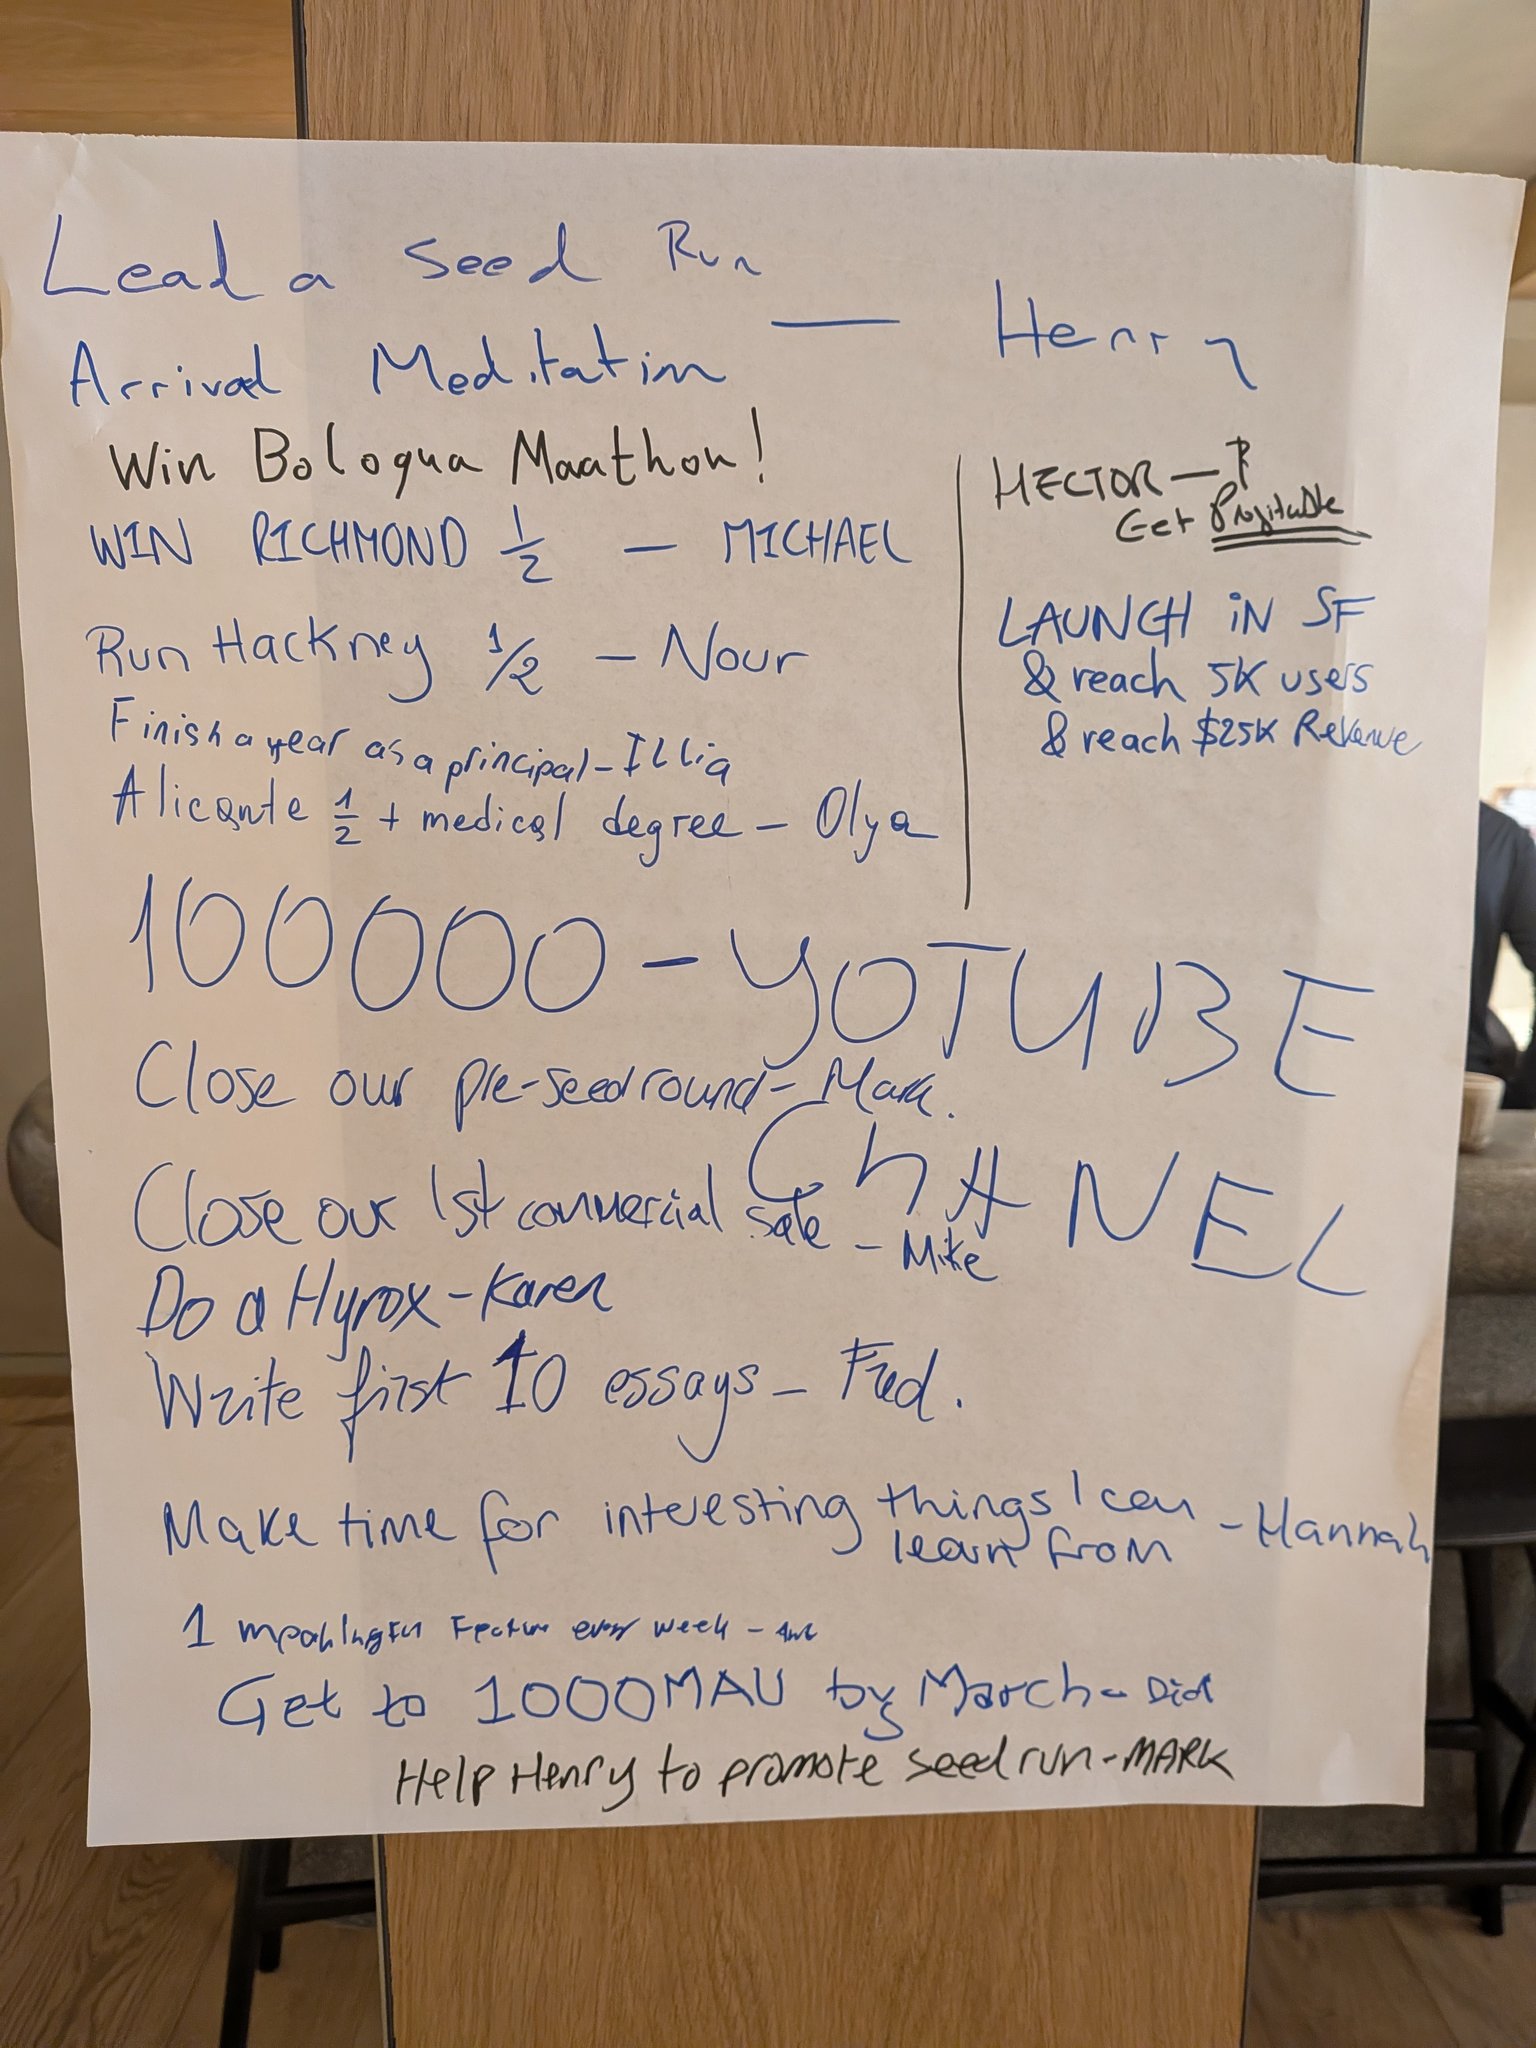 Lead a Seed Run
Arrival Meditation — Henry
Win Bologna Maathon!
WIN RICHMOND 1/2 — MICHAEL
Run Hackney 1/2 — Nour
Finish a year as a principal - Illia
Alicante 1/2 + medical degree - Olya
HECTOR —
Get Profitable
LAUNCH iN SF
& reach 5K users
& reach $25K Revenue
100000 - YOTUBE
ChANEL
Close our pre-seed round - Mark.
Close our 1st commercial sale - Mike
Do a Hyrox - Karen
Write first 10 essays - Fred.
Make time for interesting things I can
learn from - Hannah
1 meaningful Feature every week -
Get to 1000MAU by March -
Help Henry to promote seed run - MARK